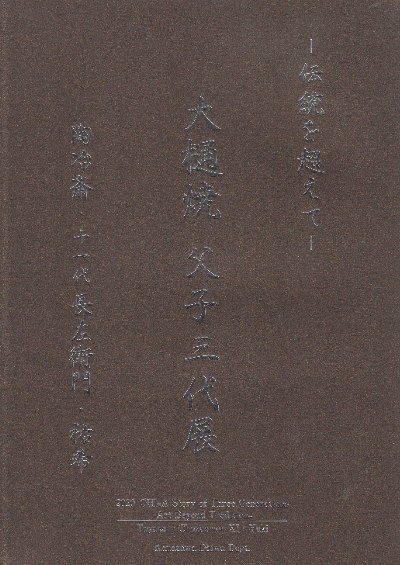 ―伝統を超えて―
大樋焼 父子三代展
陶冶斎・十一代長左衛門・祐希
Story of Three Generations
Art Beyond Tradition
Toyasai · Chozaemon XI · Yuki
Kanazawa Daiwa Dept.